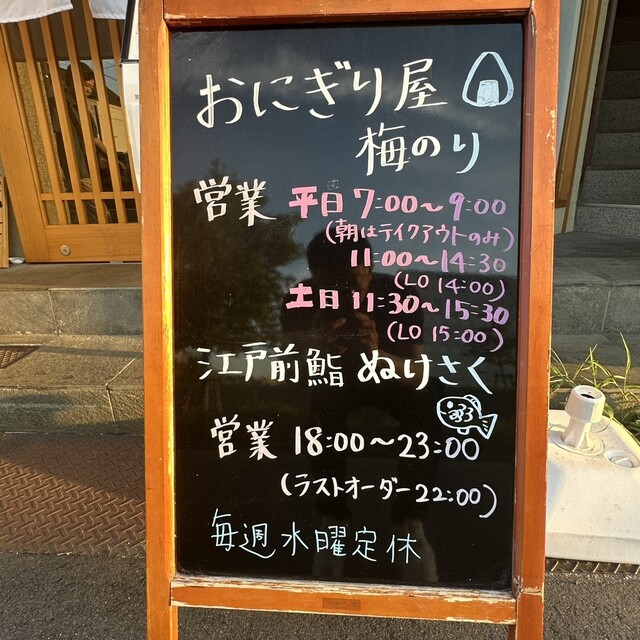 おにぎり屋
梅のり
営業 平日 7:00〜9:00
(朝はテイクアウトのみ)
11:00〜14:30
(LO 14:00)
土日 11:30〜15:30
(LO 15:00)
江戸前鮨 ぬけさく
営業 18:00〜23:00
(ラストオーダー22:00)
毎週水曜定休